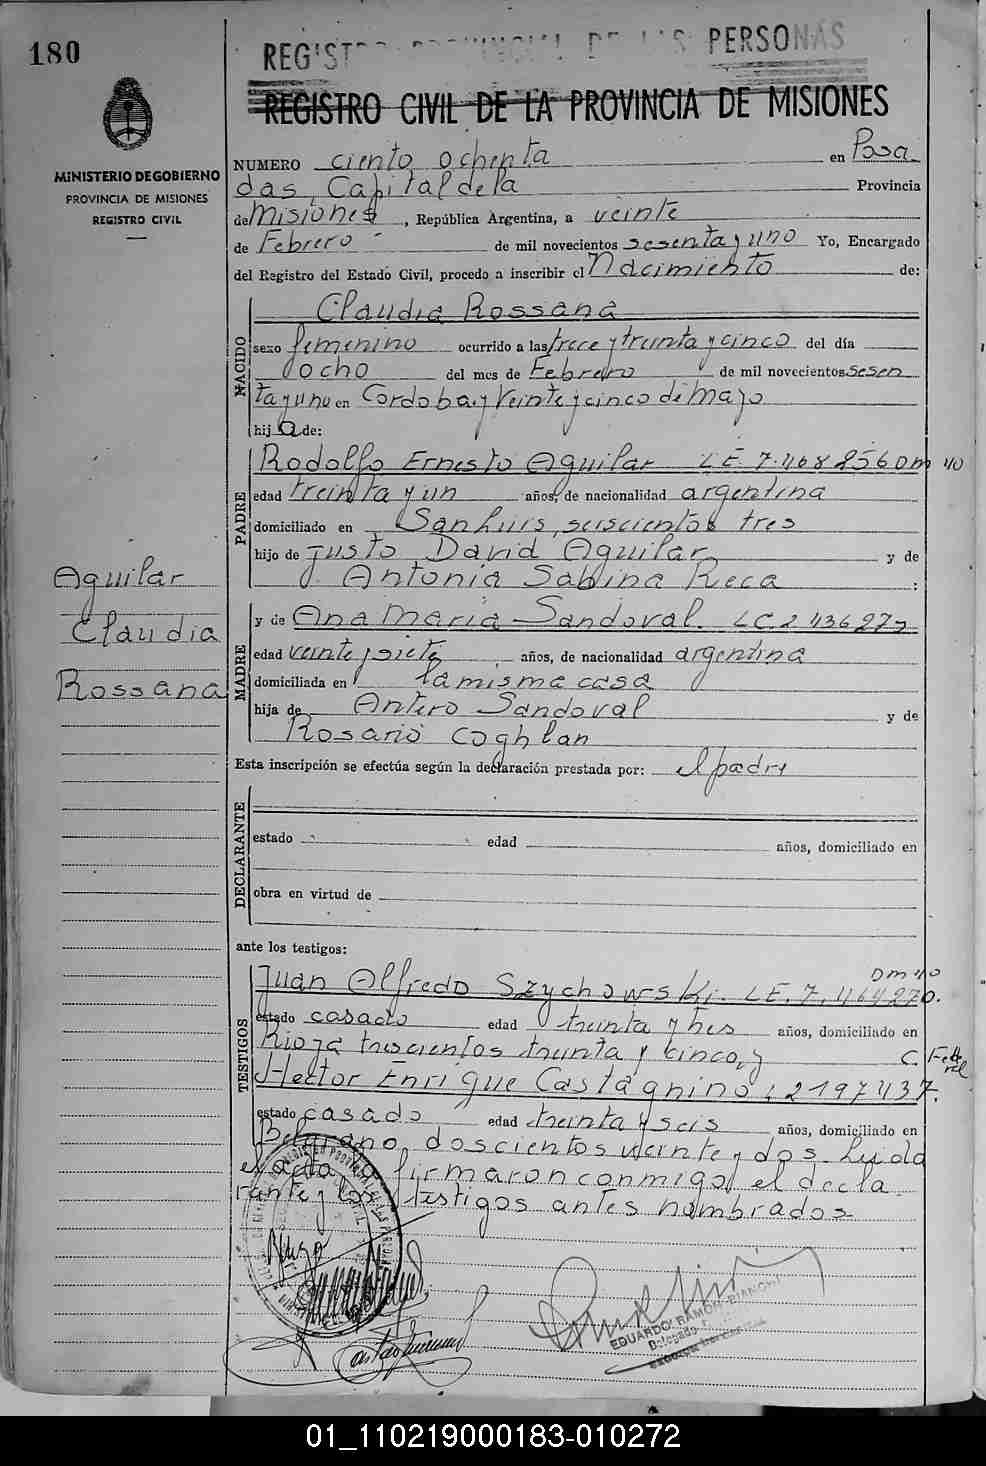 180
REGISTRO PROVINCIAL DE LAS PERSONAS
REGISTRO CIVIL DE LA PROVINCIA DE MISIONES
MINISTERIO DE GOBIERNO
PROVINCIA DE MISIONES
REGISTRO CIVIL
NUMERO ciento ochenta en Posa
das, Capital de la Provincia
de Misiones, República Argentina, a veinte
de Febrero de mil novecientos sesenta y uno Yo, Encargado
del Registro del Estado Civil, procedo a inscribir el Nacimiento de:
NACIDO
Claudia Rossana
sexo femenino ocurrido a las trece y treinta y cinco del día
ocho del mes de Febrero de mil novecientos sesen
ta y uno en Cordoba y Veinte y cinco de Mayo
hij a de:
PADRE
Rodolfo Ernesto Aguilar LE. 7.468856 DM 40
edad treinta y un años, de nacionalidad argentina
domiciliado en San Luis, seiscientos tres
hijo de Justo David Aguilar y de
Antonia Sabina Reca :
MADRE
y de Ana Maria Sandoval. LC.2436279
edad veinte y siete años, de nacionalidad argentina
domiciliada en la misma casa
hija de Antero Sandoval y de
Rosario Coghlan
Aguilar
Claudia
Rossana
Esta inscripción se efectúa según la declaración prestada por: el padre
DECLARANTE
estado edad años, domiciliado en
obra en virtud de
ante los testigos:
TESTIGOS
DM 40
Juan Alfredo Szychowski. LE. 7.464270.
estado casado edad treinta y tres años, domiciliado en
Rioja trescientos treinta y cinco, y C. Fede
ral
Hector Enrique Castagnino, 2197437.
estado casado edad treinta y seis años, domiciliado en
Belgrano, doscientos veinte y dos. Leida
el acta la firmaron conmigo el decla
rante y los testigos antes nombrados
EDUARDO RAMON BIANCHI
Delegado
01_110219000183-010272